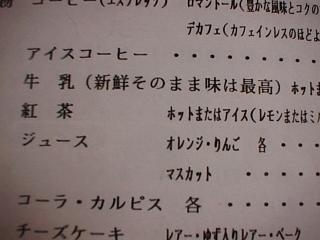 物 コーヒー(エスプレッソ) ロマントール(豊かな風味とコクの
デカフェ(カフェインレスのほどよ
アイスコーヒー ・・・・・・・
牛 乳(新鮮そのまま味は最高) ホットま
紅 茶 ホットまたはアイス(レモンまたはミル
ジュース オレンジ・りんご 各 ・・・・
マスカット ・・・・・
コーラ・カルピス 各 ・・・・・
チーズケーキ レアー・ゆず入りレアー・ベーク